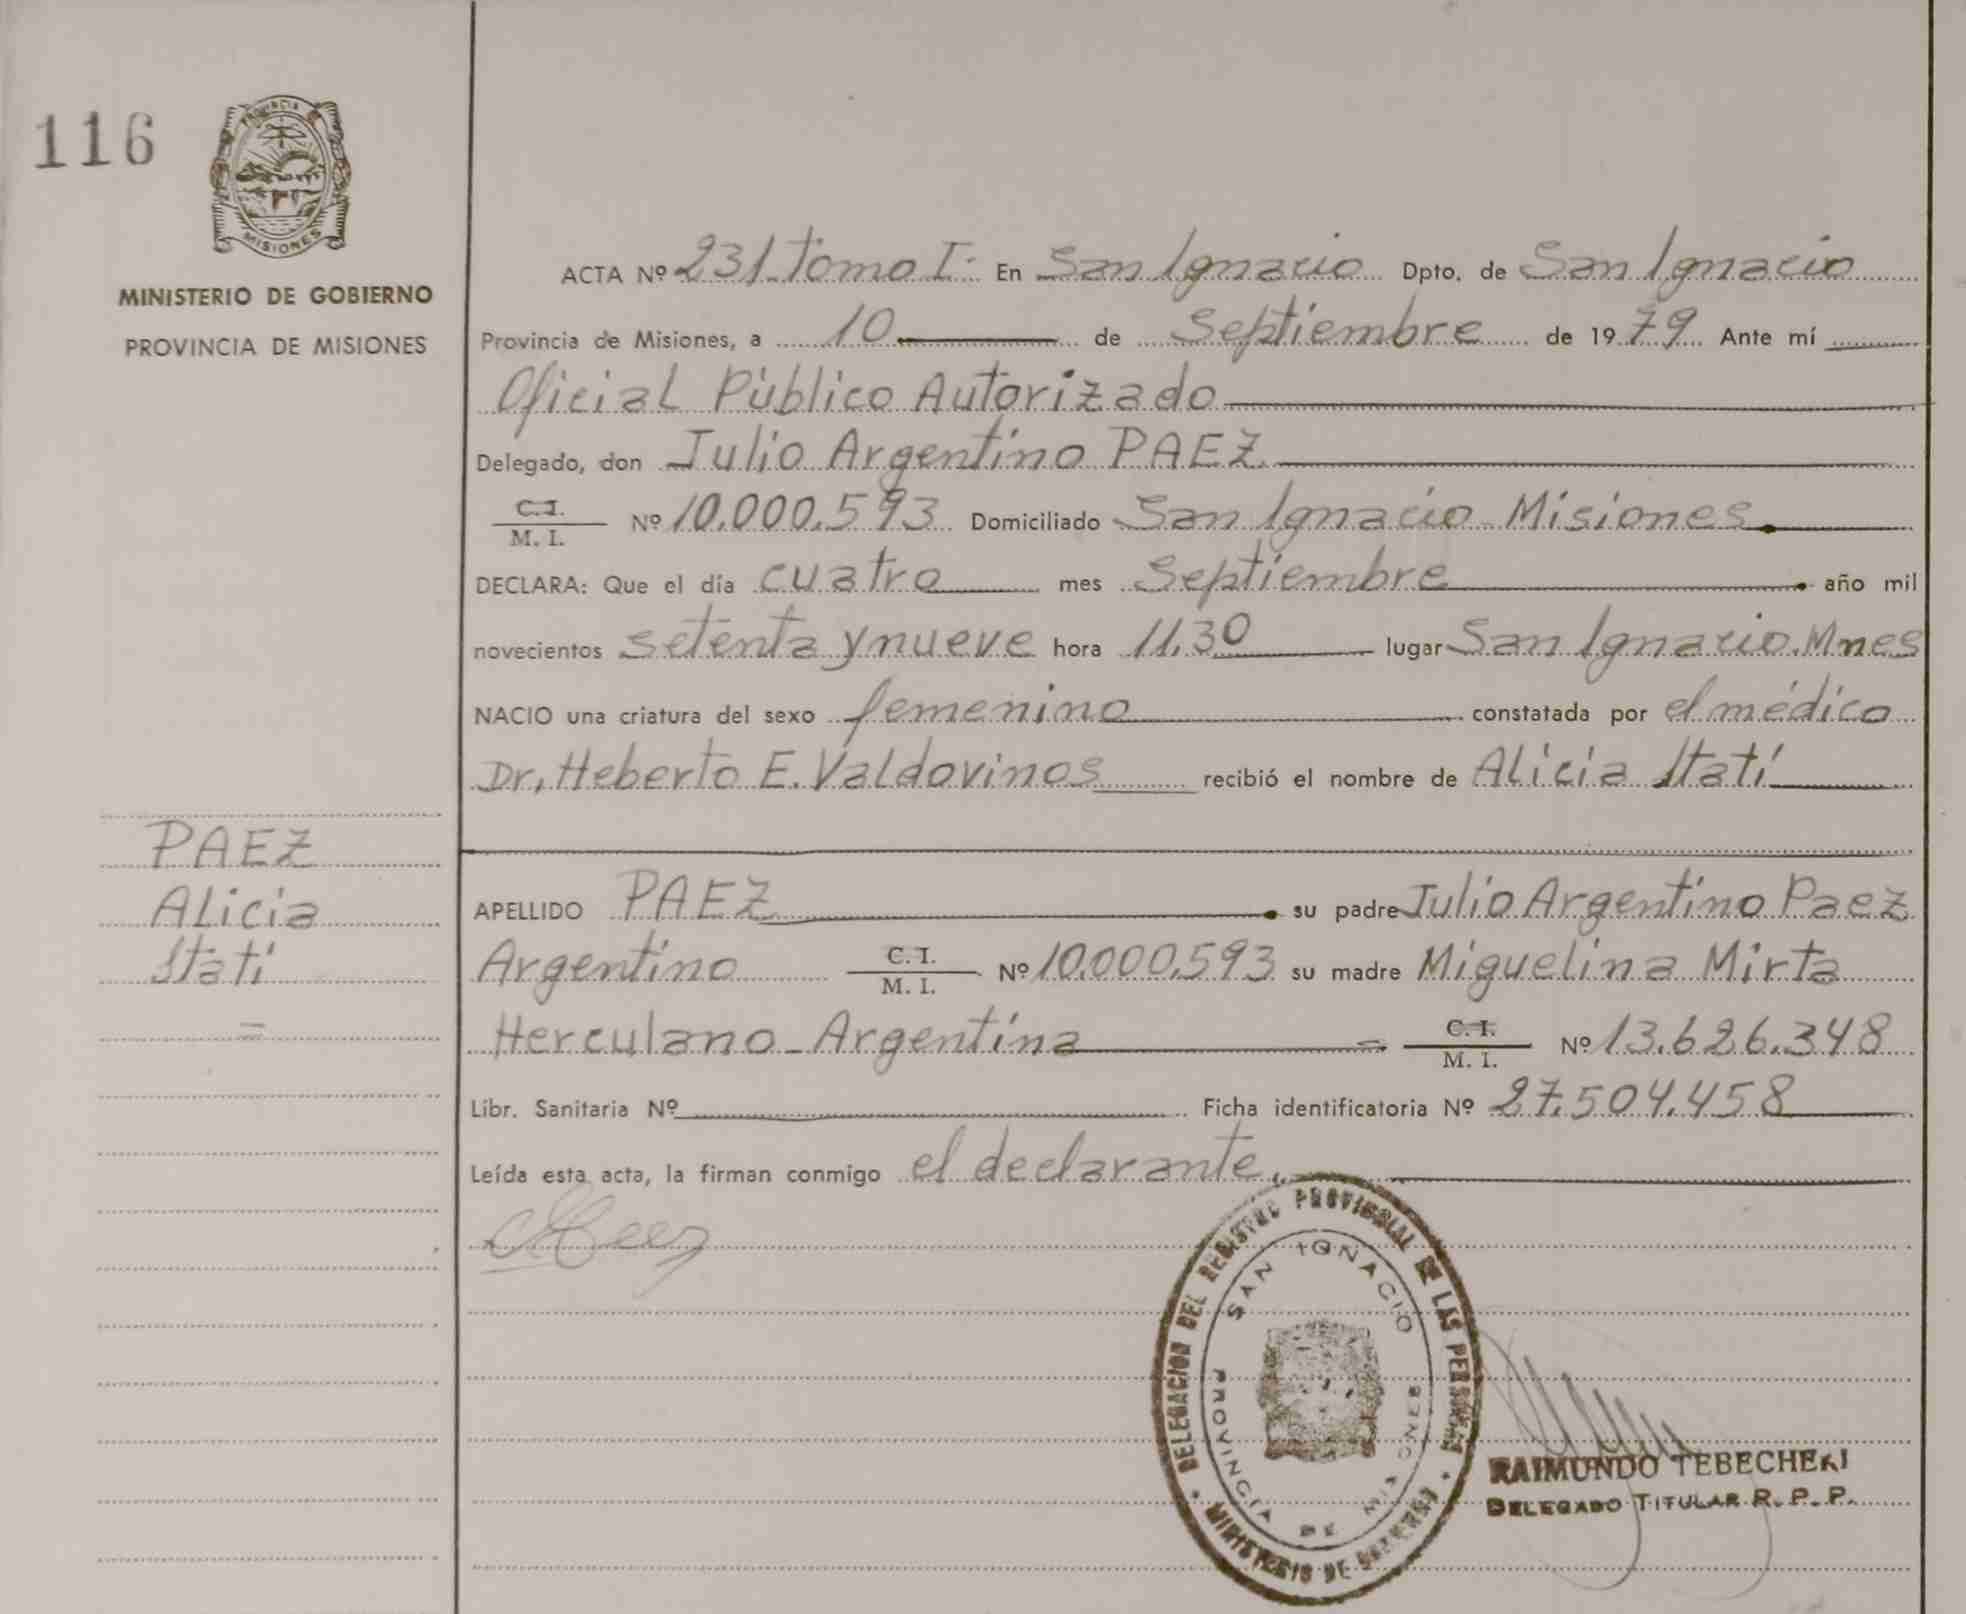 116
PROVINCIA
MISIONES
MINISTERIO DE GOBIERNO
PROVINCIA DE MISIONES
ACTA Nº 231 Tomo I. En San Ignacio Dpto. de San Ignacio
Provincia de Misiones, a 10 de Septiembre de 1979 Ante mí
Oficial Público Autorizado
Delegado, don Julio Argentino PAEZ
C.I.
M. I. Nº 10.000.593 Domiciliado San Ignacio Misiones
DECLARA: Que el día cuatro mes Septiembre año mil
novecientos setenta y nueve hora 11.30 lugar San Ignacio. Mnes
NACIO una criatura del sexo femenino constatada por el médico
Dr, Heberto E. Valdovinos recibió el nombre de Alicia Itatí
PAEZ
Alicia
Itatí
APELLIDO PAEZ su padre Julio Argentino Paez
Argentino C.I. M. I. Nº 10.000.593 su madre Miguelina Mirta
Herculano - Argentina = C.I. M. I. Nº 13.626.348
Libr. Sanitaria Nº Ficha identificatoria Nº 27.504.458
Leída esta acta, la firman conmigo el declarante,
DELEGACION DEL REGISTRO PROVINCIAL DE LAS PERSONAS
SAN IGNACIO
PROVINCIA DE MISIONES
MINISTERIO DE GOBIERNO
RAIMUNDO TEBECHERI
DELEGADO TITULAR R. P. P.